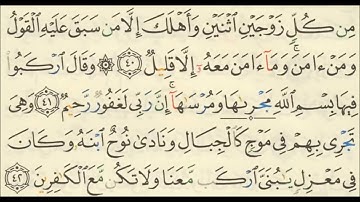 مِن كُلٍّ زَوْجَيْنِ اثْنَيْنِ وَأَهْلَكَ إِلَّا مَن سَبَقَ عَلَيْهِ الْقَوْلُ
وَمَنْ ءَامَنَ وَمَآ ءَامَنَ مَعَهُۥٓ إِلَّا قَلِيلٌ ٤٠ ۞ وَقَالَ ارْكَبُوا۟
فِيهَا بِسْمِ اللَّهِ مَجْر۪ىٰهَا وَمُرْسَىٰهَآ إِنَّ رَبِّى لَغَفُورٌ رَّحِيمٌ ٤١ وَهِىَ
تَجْرِى بِهِمْ فِى مَوْجٍ كَالْجِبَالِ وَنَادَىٰ نُوحٌ ابْنَهُۥ وَكَانَ
فِى مَعْزِلٍ يَٰبُنَىَّ ارْكَب مَّعَنَا وَلَا تَكُن مَّعَ الْكَٰفِرِينَ ٤٢